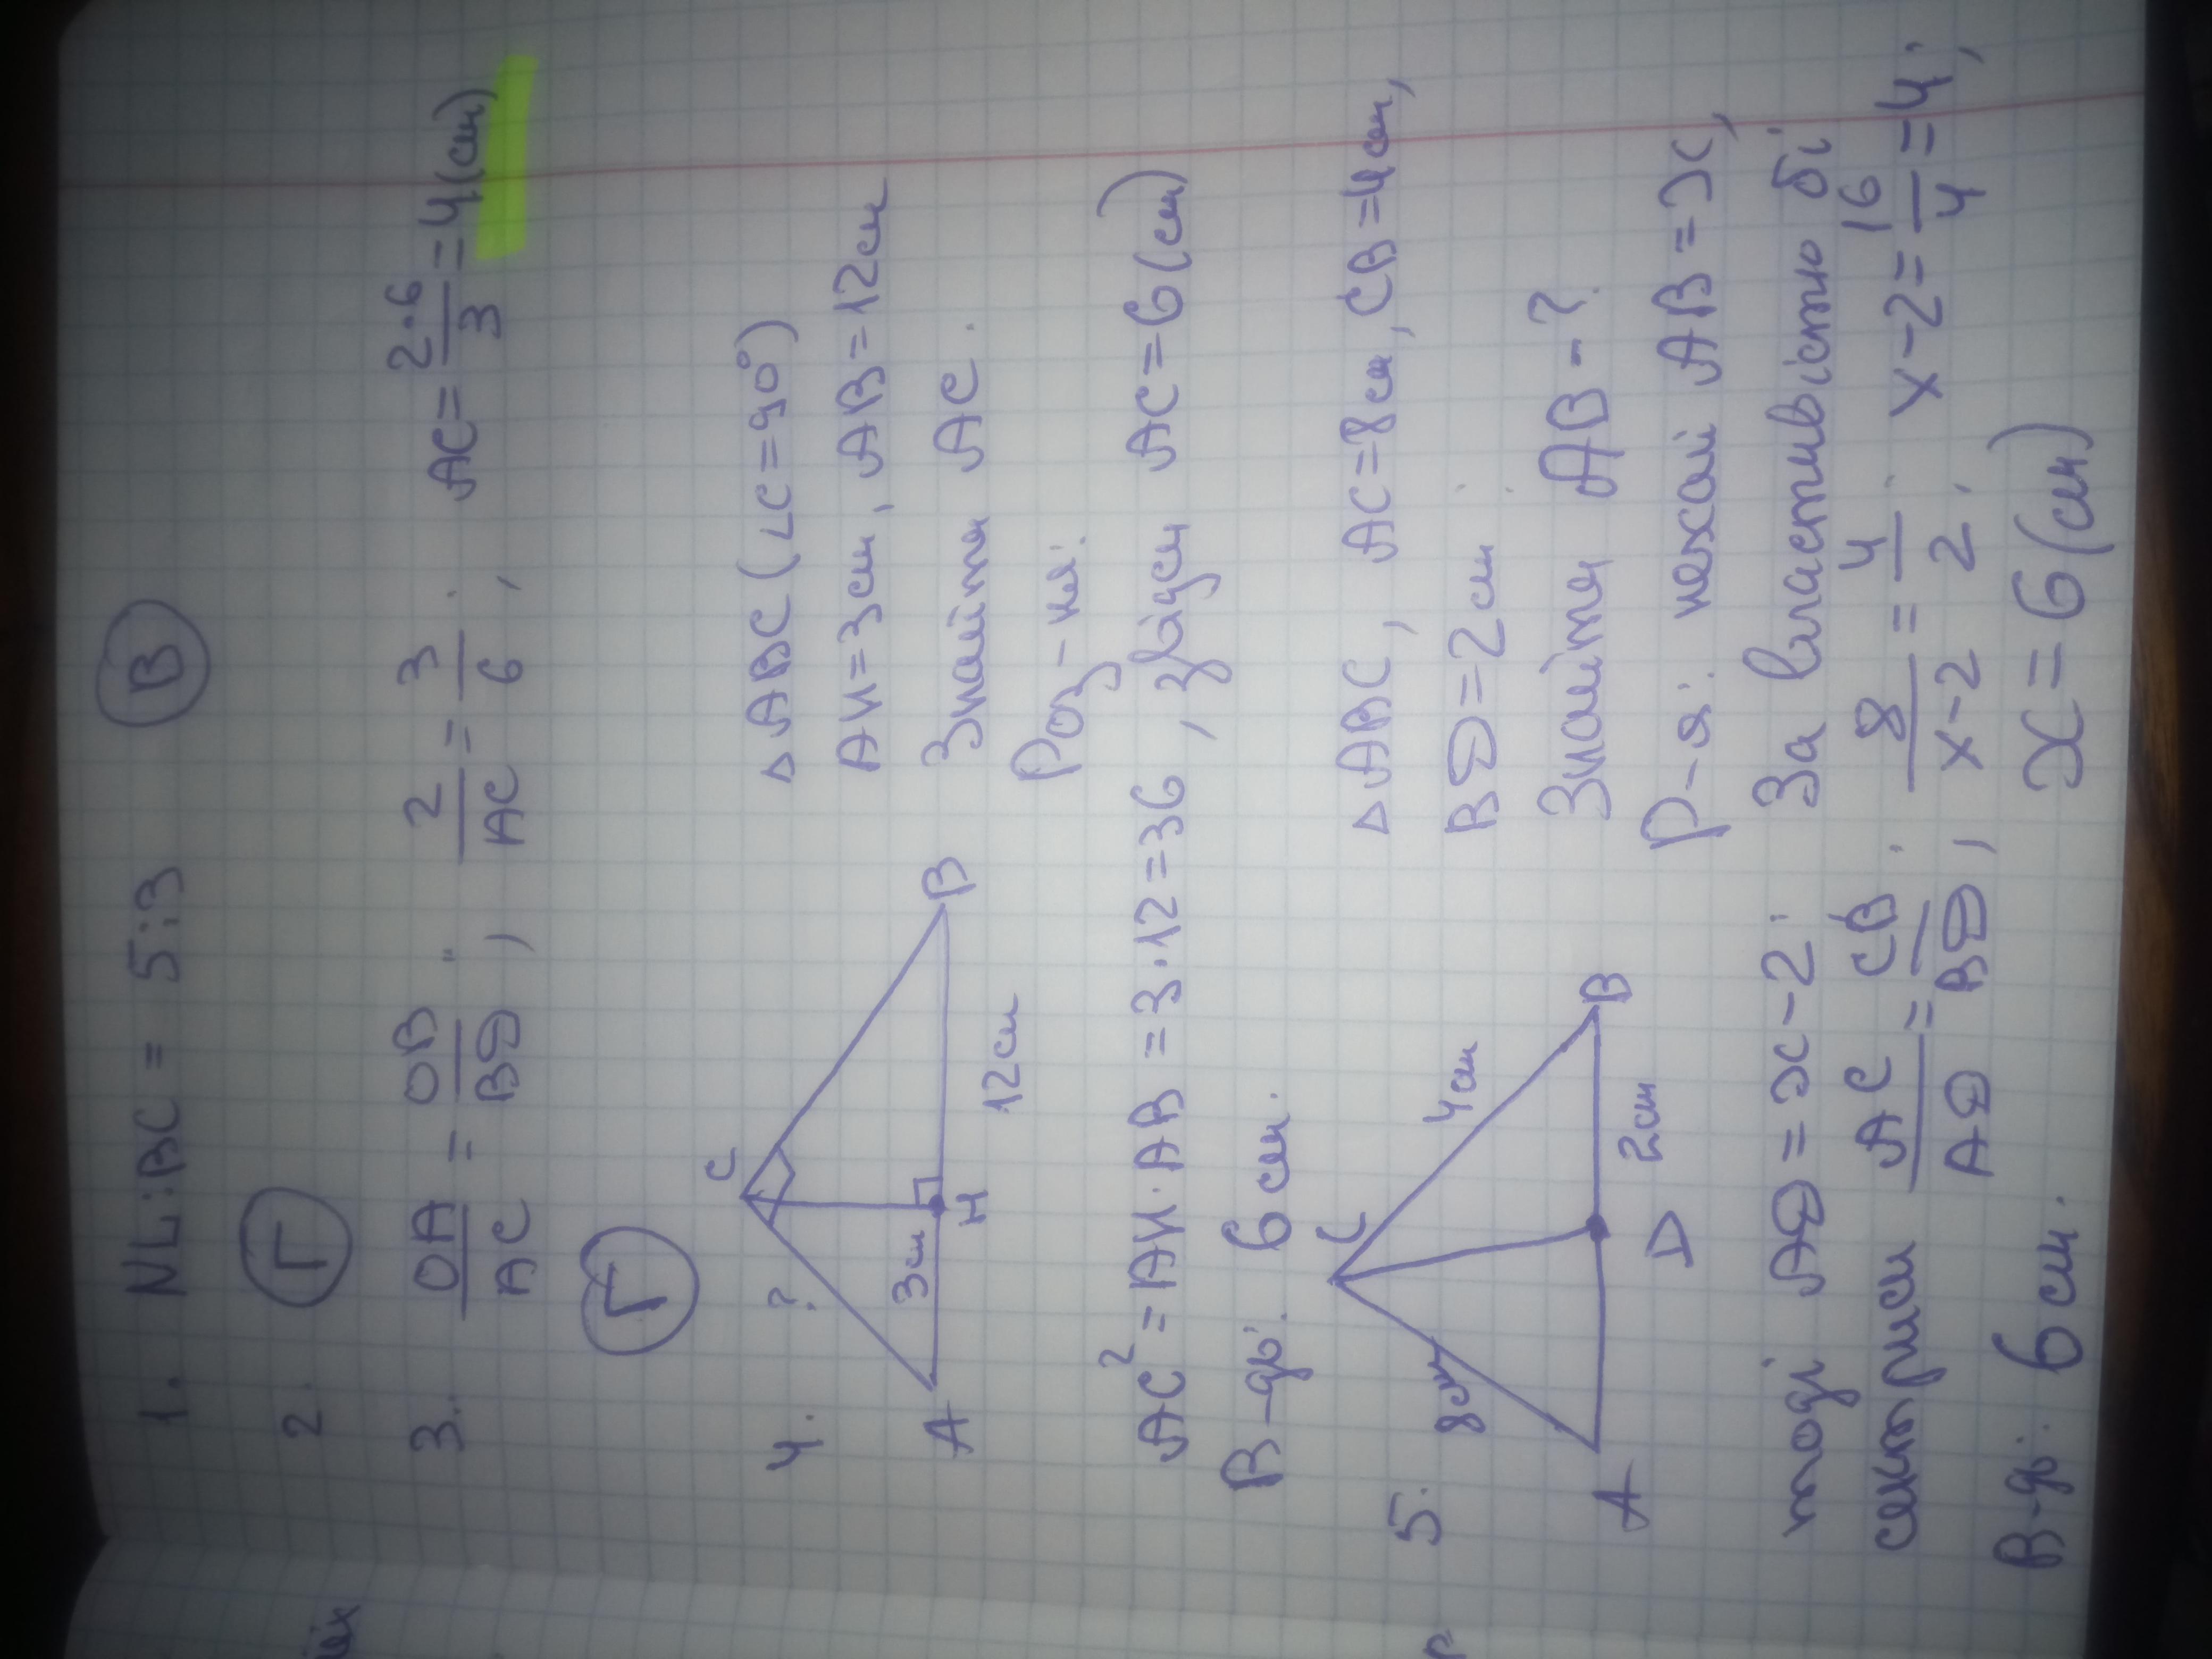 1. NL:BC = 5:3 В
2. Г
3. OA/AC = OB/BD, 2/AC = 3/6, AC = 2·6/3 = 4(см)
Г
4.
C
?
3см
A
H
B
12см
△ABC (∠C=90°)
AH=3см, AB=12см
Знайти AC.
Роз-ня:
AC² = AH·AB = 3·12=36, звідси AC=6(см)
В-дь: 6 см.
5.
C
8см
4см
A
D
2см
B
△ABC, AC=8см, CB=4см,
BD=2см
Знайти AB-?
Р-я: нехай AB=x,
тоді AD=x-2. За властивістю бі
сектриси AC/AD = CB/BD; 8/x-2 = 4/2; x-2=16/4=4;
В-дь: 6 см. x=6(см)